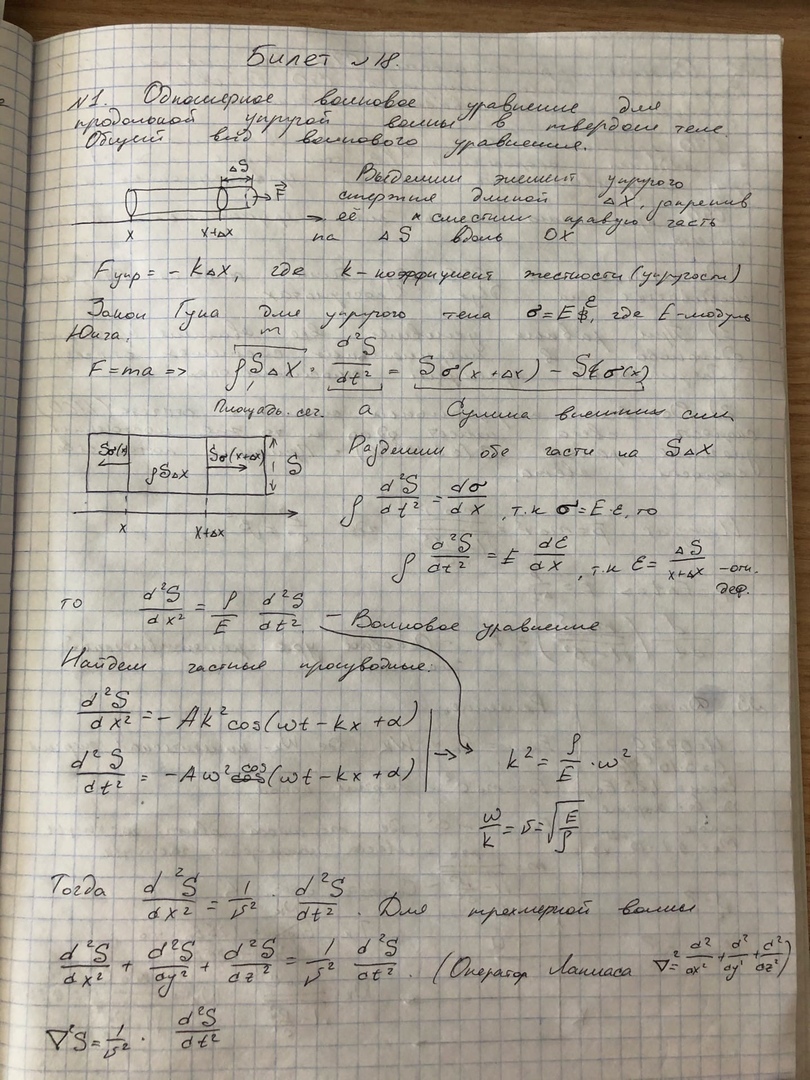 Билет №18.
№1. Одномерное волновое уравнение для
продольной упругой волны в твердом теле.
Общий вид волнового уравнения.
ΔS
F⃗
x
x+Δx
Выделим элемент упругого
стержня длиной ΔX, закрепив
её и сместим правую часть
на ΔS вдоль OX
Fупр = - kΔX, где k - коэффициент жесткости (упругости)
Закон Гука для упругого тела σ = E ε, где E - модуль
Юнга.
m
F = ma => ρSΔX · d²S/dt² = Sσ(x+Δx) - Sσ(x)
Площадь сеч. a Сумма внешних сил
Sσ(x)
ρSΔX
Sσ(x+Δx)
S
x
x+Δx
Разделим обе части на SΔX
ρ d²S/dt² = dσ/dx, т.к σ = E·ε, то
ρ d²S/dt² = E dε/dx, т.к ε = ΔS/x+Δx - отн.
деф.
то d²S/dx² = ρ/E d²S/dt² - Волновое уравнение
Найдем частные производные:
d²S/dx² = - Ak² cos(ωt - kx + α)
d²S/dt² = - Aω² cos(ωt - kx + α)
→ k² = ρ/E · ω²
ω/k = v = √E/ρ
Тогда d²S/dx² = 1/v² · d²S/dt². Для трехмерной волны
d²S/dx² + d²S/dy² + d²S/dz² = 1/v² d²S/dt². (Оператор Лапласа ∇² = d²/dx² + d²/dy² + d²/dz²)
∇²S = 1/v² · d²S/dt²